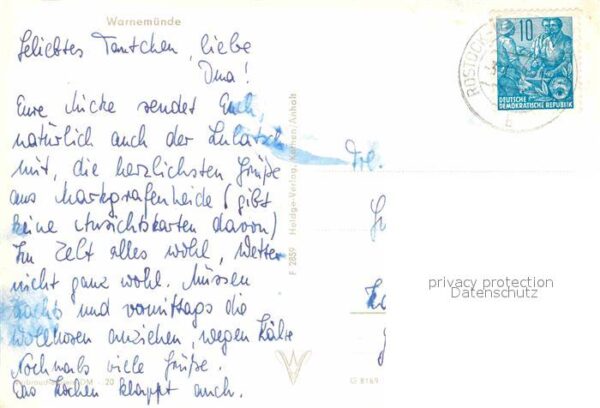 Warnemünde
Geliebtes Tantchen, liebe
Oma!
Eure Micke sendet Euch,
natürlich auch der Lulatsch
mit, die herzlichsten Grüße
aus Markgrafenheide (gibt
keine Ansichtskarten davon)
Im Zelt alles wohl, Wetter
nicht ganz wohl. Müssen
nachts und vormittags die
Wollhosen anziehen, wegen Kälte
Nochmals viele Grüße.
Das Kochen klappt auch.
DM - 20
F 2859 Holdge-Verlag, Köthen/Anhalt
G 8169
ROSTOCK
10
DEUTSCHE
DEMOKRATISCHE REPUBLIK
privacy protection
Datenschutz